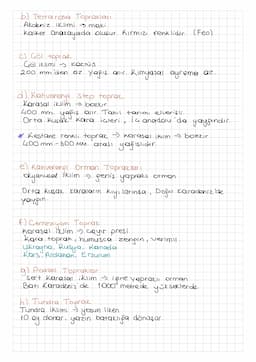 b) Terrarossa Toprakları
Akdeniz iklimi → maki
Kalker anakayada oluşur. Kırmızı renklidir. (FeO)
c) Çöl toprak
Çöl iklimi → kaktüs
200 mm'den az yağış alır. Kimyasal ayrışma az.
d) Kahverengi Step toprak
Karasal iklim → bozkır
400 mm yağış alır. Tahıl tarımı elverişli.
Orta kuşak kara içleri, İç Anadolu'da yaygındır.
* Kestane renkli toprak → karasal iklim → bozkır
400 mm - 500 mm arası yağışlıdır.
e) Kahverengi Orman Toprakları
Okyanusal İklim → geniş yapraklı orman
Orta kuşak karaların kıyılarında, Doğu Karadeniz'de
yaygın.
f) Çernezyom Toprak
Karasal İklim → çayır presi
Kara toprak, humusca zengin, verimli.
Ukrayna, Rusya, Kanada
Kars, Ardahan, Erzurum
g) Podzol Topraklar
Sert karasal iklim → iğne yapraklı orman
Batı Karadeniz'de 1000 metrede yükseklerde
h) Tundra Toprak
Tundra iklimi → yosun liken
10 ay donar, yazın bataklığa dönüşür.